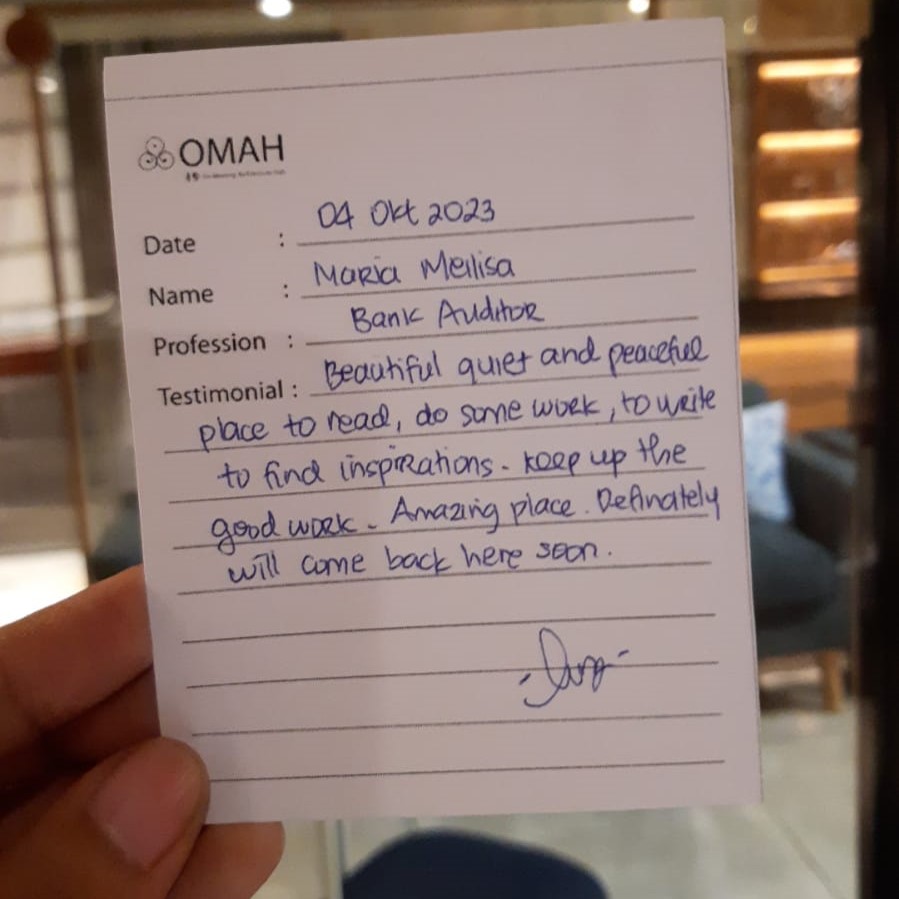 OMAH
Date : 04 Okt 2023
Name : Maria Meilisa
Profession : Bank Auditor
Testimonial : Beautiful quiet and peaceful
place to read, do some work, to write
to find inspirations. Keep up the
good work. Amazing place. Definately
will come back here soon.